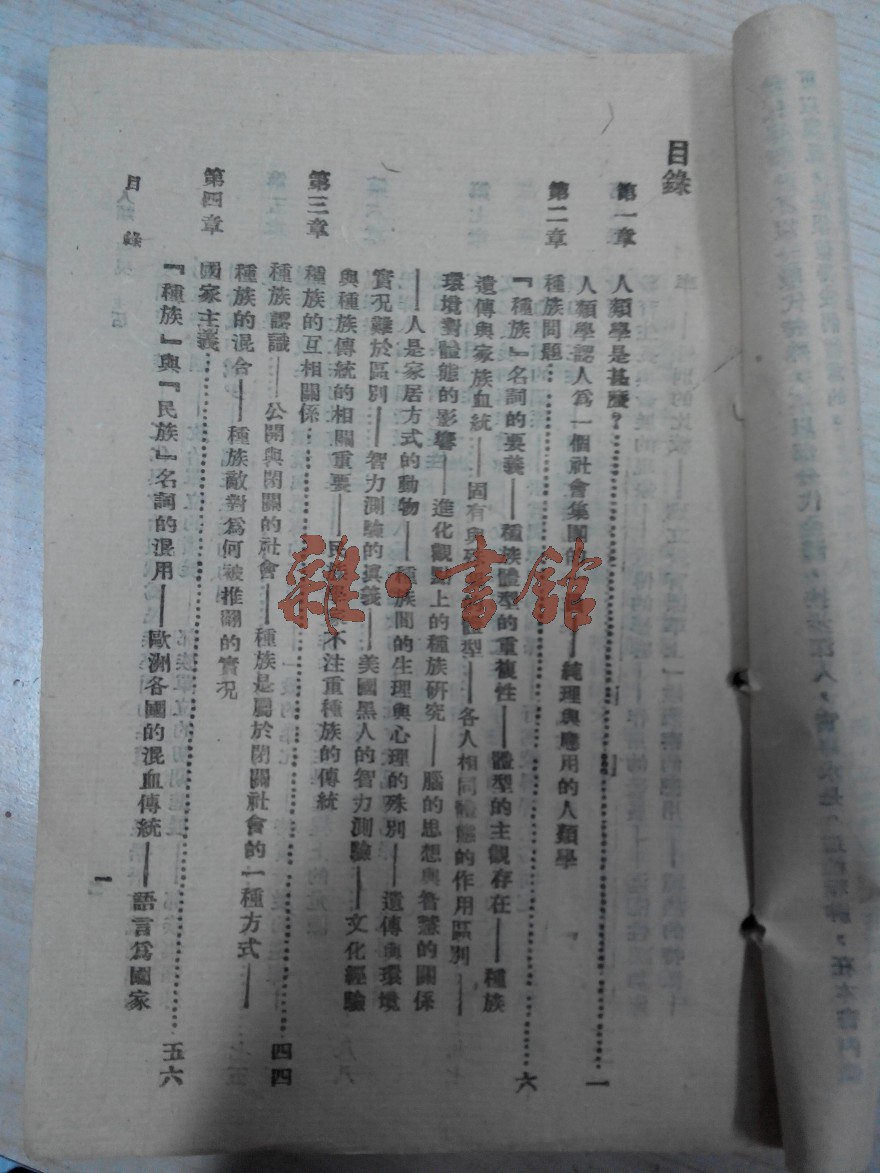 目錄
第一章 人類學是甚麼？……一
人類學認人為一個社會集團的 ——純理與應用的人類學
第二章 種族問題……六
『種族』名詞的要義——種族體型的重複性——體型的主觀存在——種族
遺傳與家族血統——固有與 體型——各人相同體態的作用區別——
環境對體態的影響——進化觀點上的種族研究——腦的思想與智慧的關係
——人是家居方式的動物——種族間的生理與心理的殊別——遺傳與環境
實況難於區別——智力測驗的真義——美國黑人的智力測驗——文化經驗
與種族傳統的相關重要——民族學 不注重種族的傳統
第三章 種族的互相關係……四四
種族認識——公開與閉關的社會——種族是屬於閉關社會的一種方式——
種族的混合——種族敵對為何被推翻的實況
第四章 國家主義……五六
『種族』與『民族』名詞的混用——歐洲各國的混血傳統——語言為國家
目錄
一
雜·書館